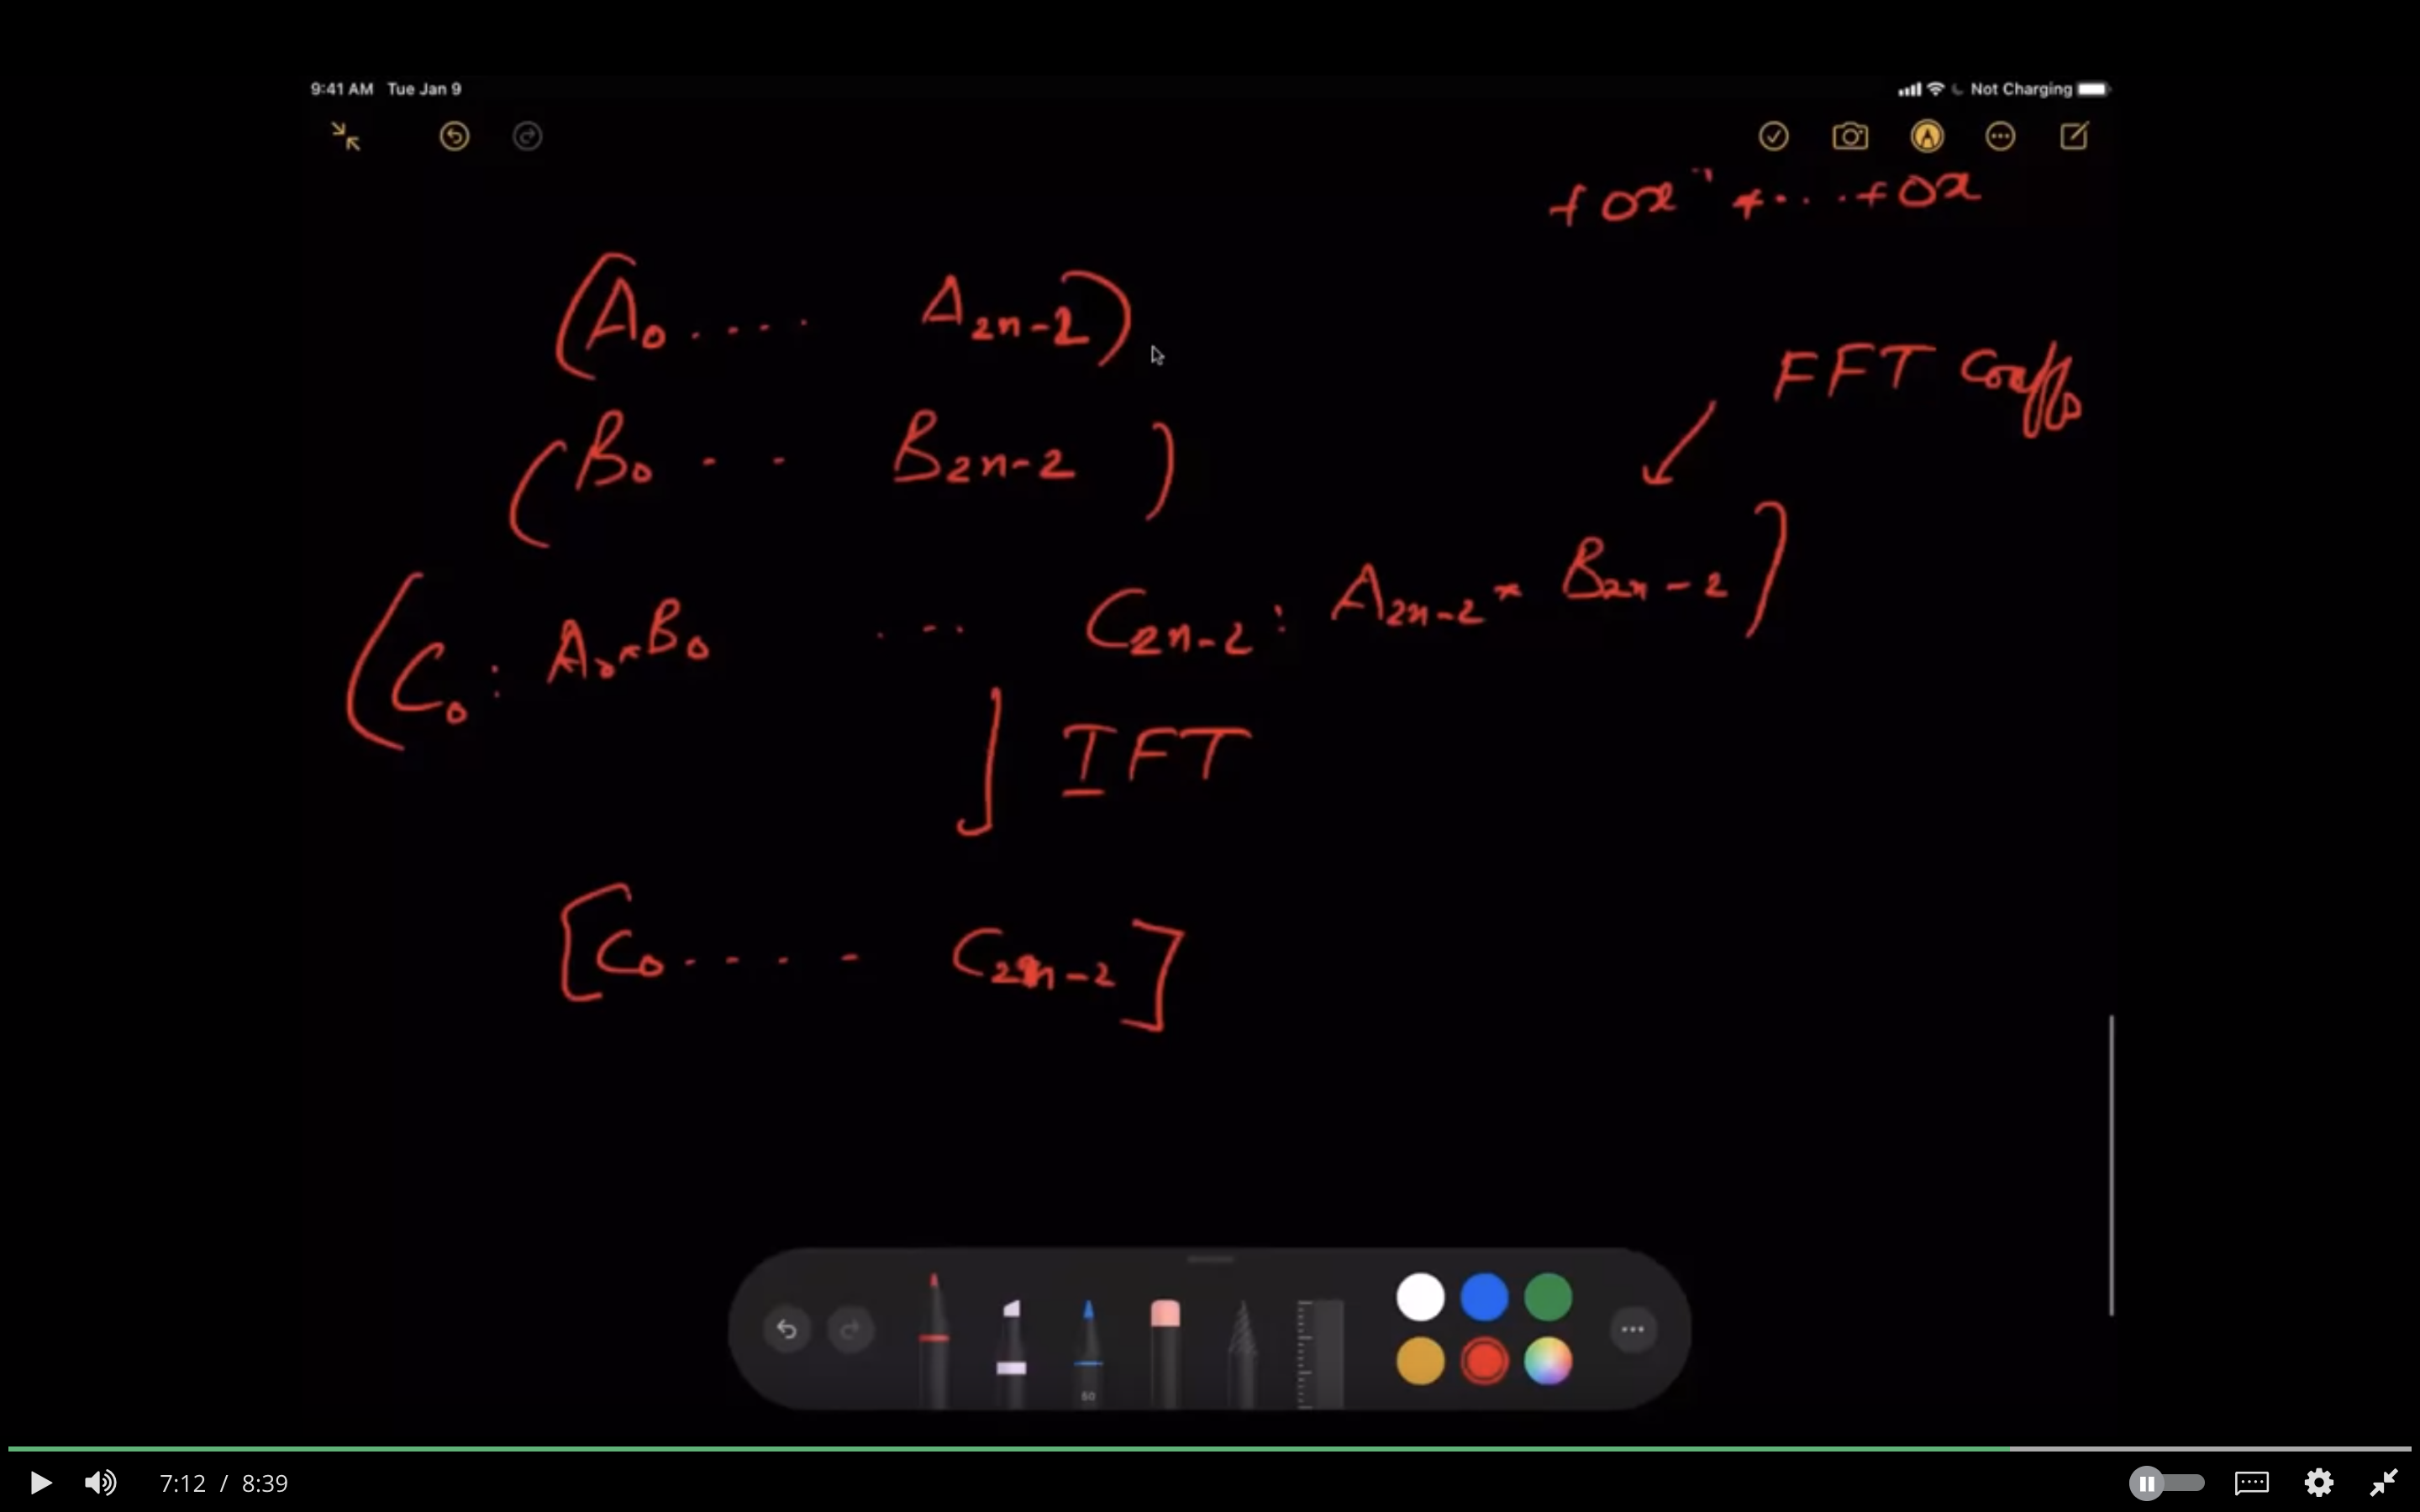 9:41 AM Tue Jan 9
Not Charging
+ 0x + ... + 0x
(A0 .... A2n-2)
FFT Coeffs
(B0 .. B2n-2)
(C0 : A0 * B0 ... C2n-2 : A2n-2 * B2n-2]
IFT
[C0 .... C2n-2]
50
7:12 / 8:39